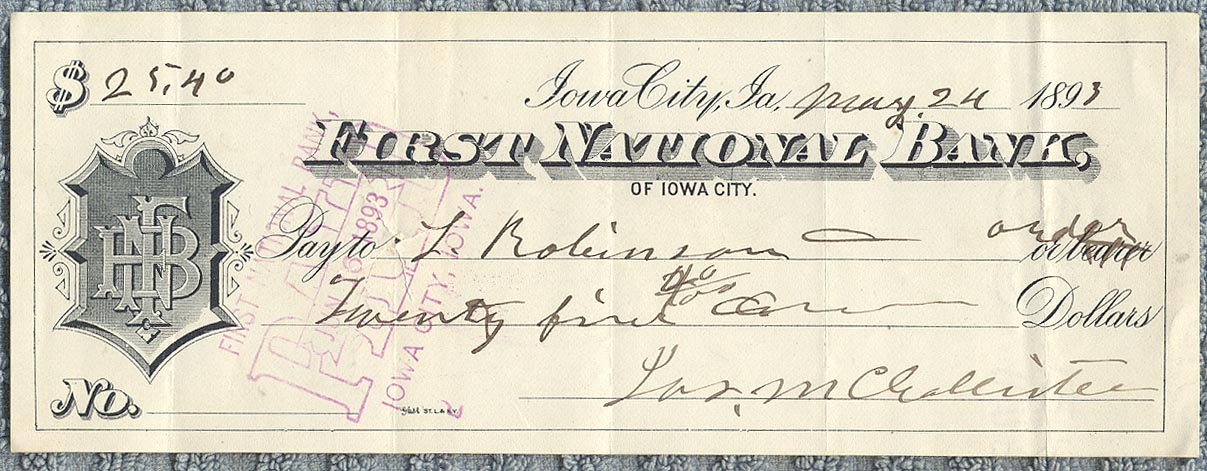 $ 25.40
Iowa City, Ia. May 24 1893
FIRST NATIONAL BANK,
OF IOWA CITY.
FNB
Pay to L Robinson order or bearer
Twenty five 40/100 Dollars
Jas. McChallister
No.
FIRST NATIONAL BANK,
PAID
1893
IOWA CITY, IOWA.